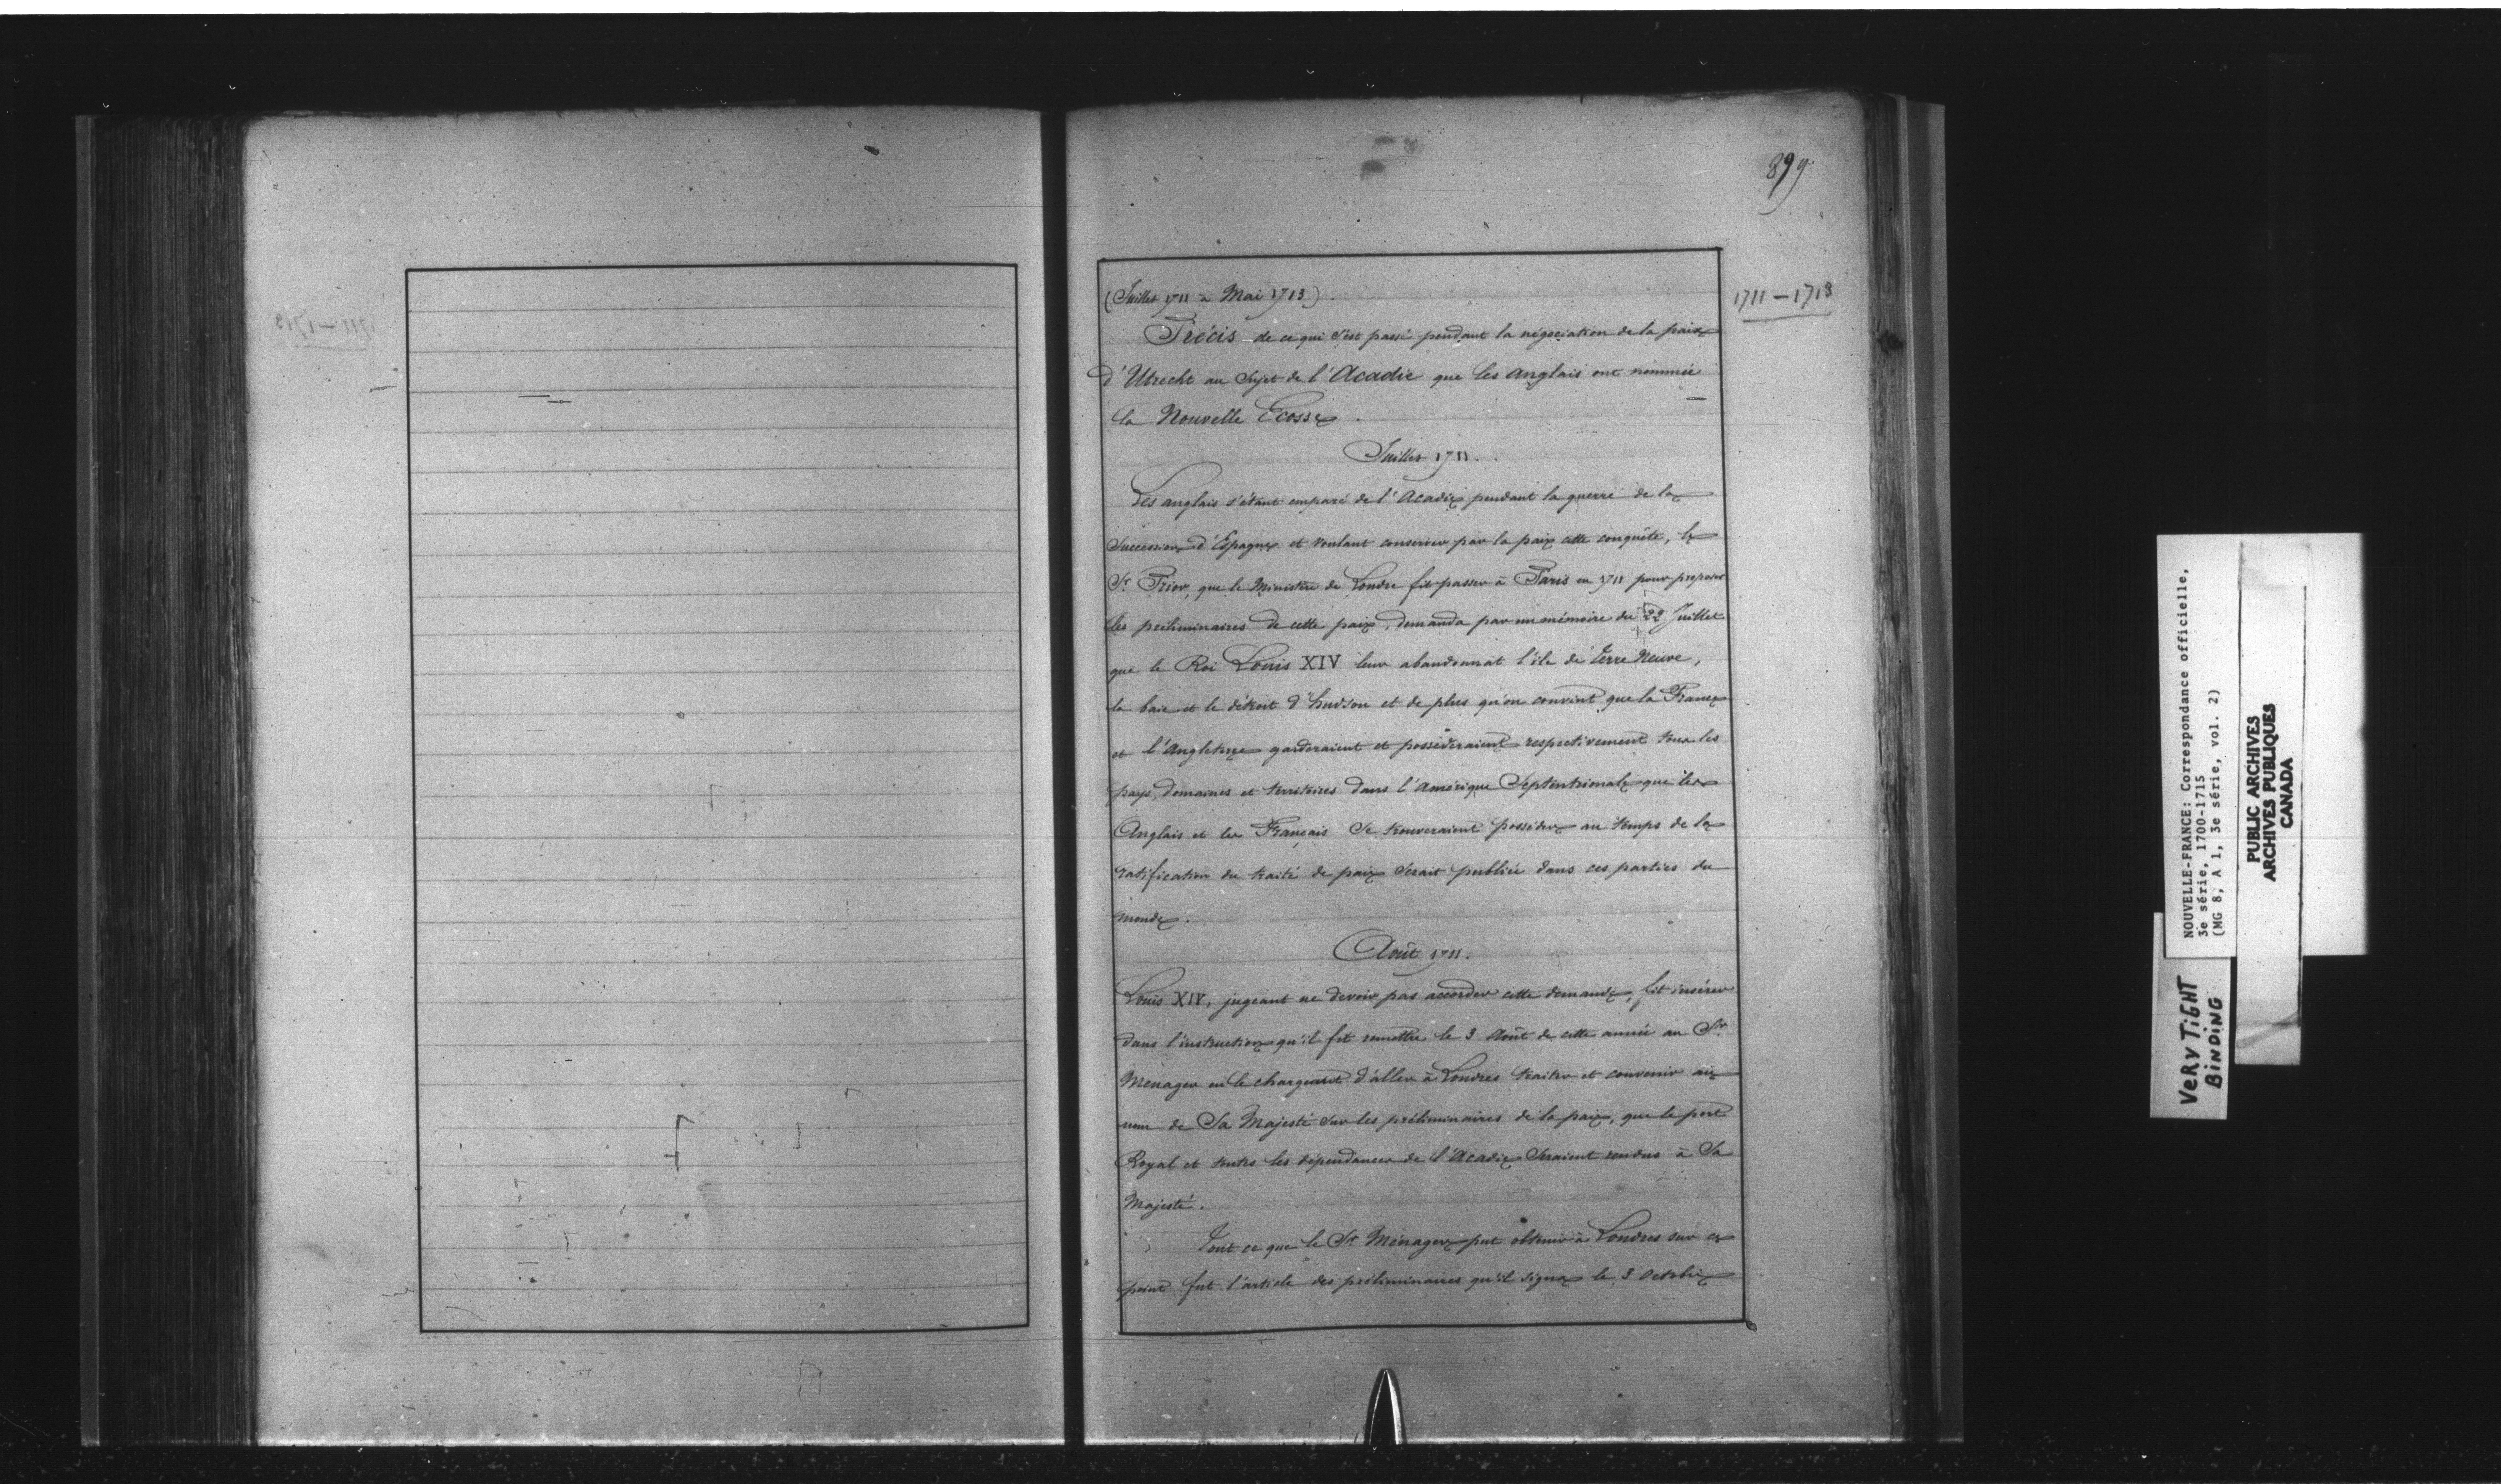 899
1711 – 1713
(Juillet 1711 à Mai 1713).
Précis de ce qui s'est passé pendant la négociation de la paix
d'Utrecht au Sujet de l'Acadie que les Anglais ont nommée
la Nouvelle Ecosse.
Juillet 1711.
Les anglais s'étant emparé de l'Acadie pendant la guerre de la
Succession d'Espagne et voulant conserver par la paix cette conquête, le
Sr. Prior, que le Ministère de Londre fit passer à Paris en 1711 pour proposer
les préliminaires de cette paix, demanda par un mémoire du 22 Juillet
que le Roi Louis XIV leur abandonnât l'île de Terre Neuve,
la baie et le détroit d'hudson et de plus qu'on convint que la France
et l'Angleterre garderaient et possèderaient respectivement tous les
pays, domaines et territoires dans l'Amérique Septentrionale que les
Anglais et les Français se trouveraient posséder au temps de la
ratification du traité de paix serait publiée dans ces parties du
monde.
Août 1711.
Louis XIV, jugeant ne devoir pas accorder cette demande, fit insérer
dans l'instruction qu'il fit remettre le 3 Août de cette année au Sr.
Ménager en le chargeant d'aller à Londres traiter et convenir au
nom de Sa Majesté sur les préliminaires de la paix, que le port
Royal et toutes les dépendances de l'Acadie Seraient rendus à Sa
Majesté.
Tout ce que le Sr Ménager put obtenir à Londres sur ce
point fut l'article des préliminaires qu'il signa le 3 Octobre
NOUVELLE-FRANCE: Correspondance officielle,
3e série, 1700-1715
(MG 8, A 1, 3e série, vol. 2)
PUBLIC ARCHIVES
ARCHIVES PUBLIQUES
CANADA
VERY TiGHT
BiNDiNG